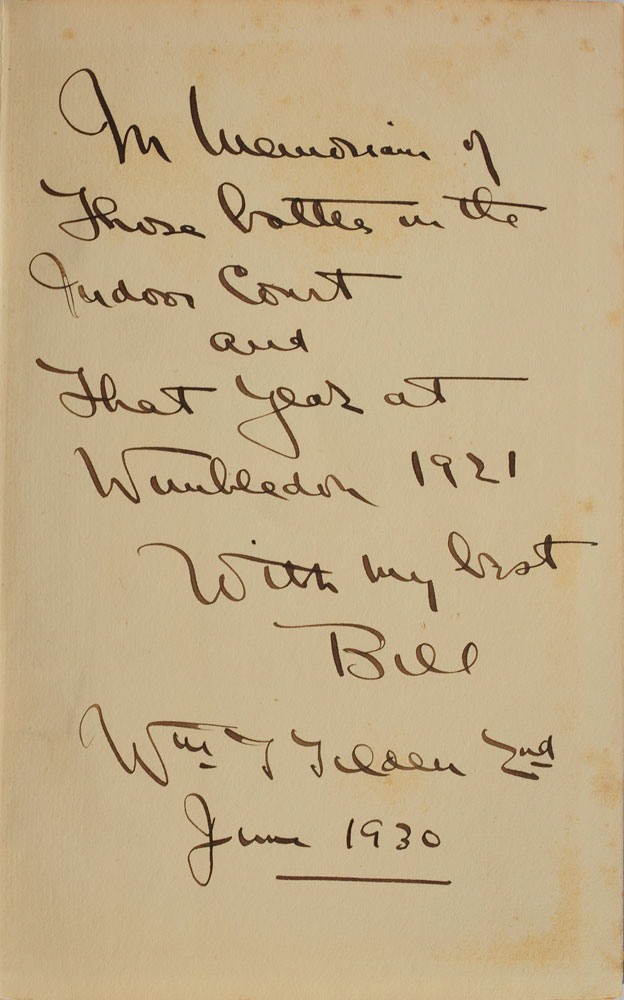 In Memoriam of
Those battles in the
Indoor Court
and
That Year at
Wimbledon 1921
With my best
Bill
Wm T Tilden 2nd
June 1930